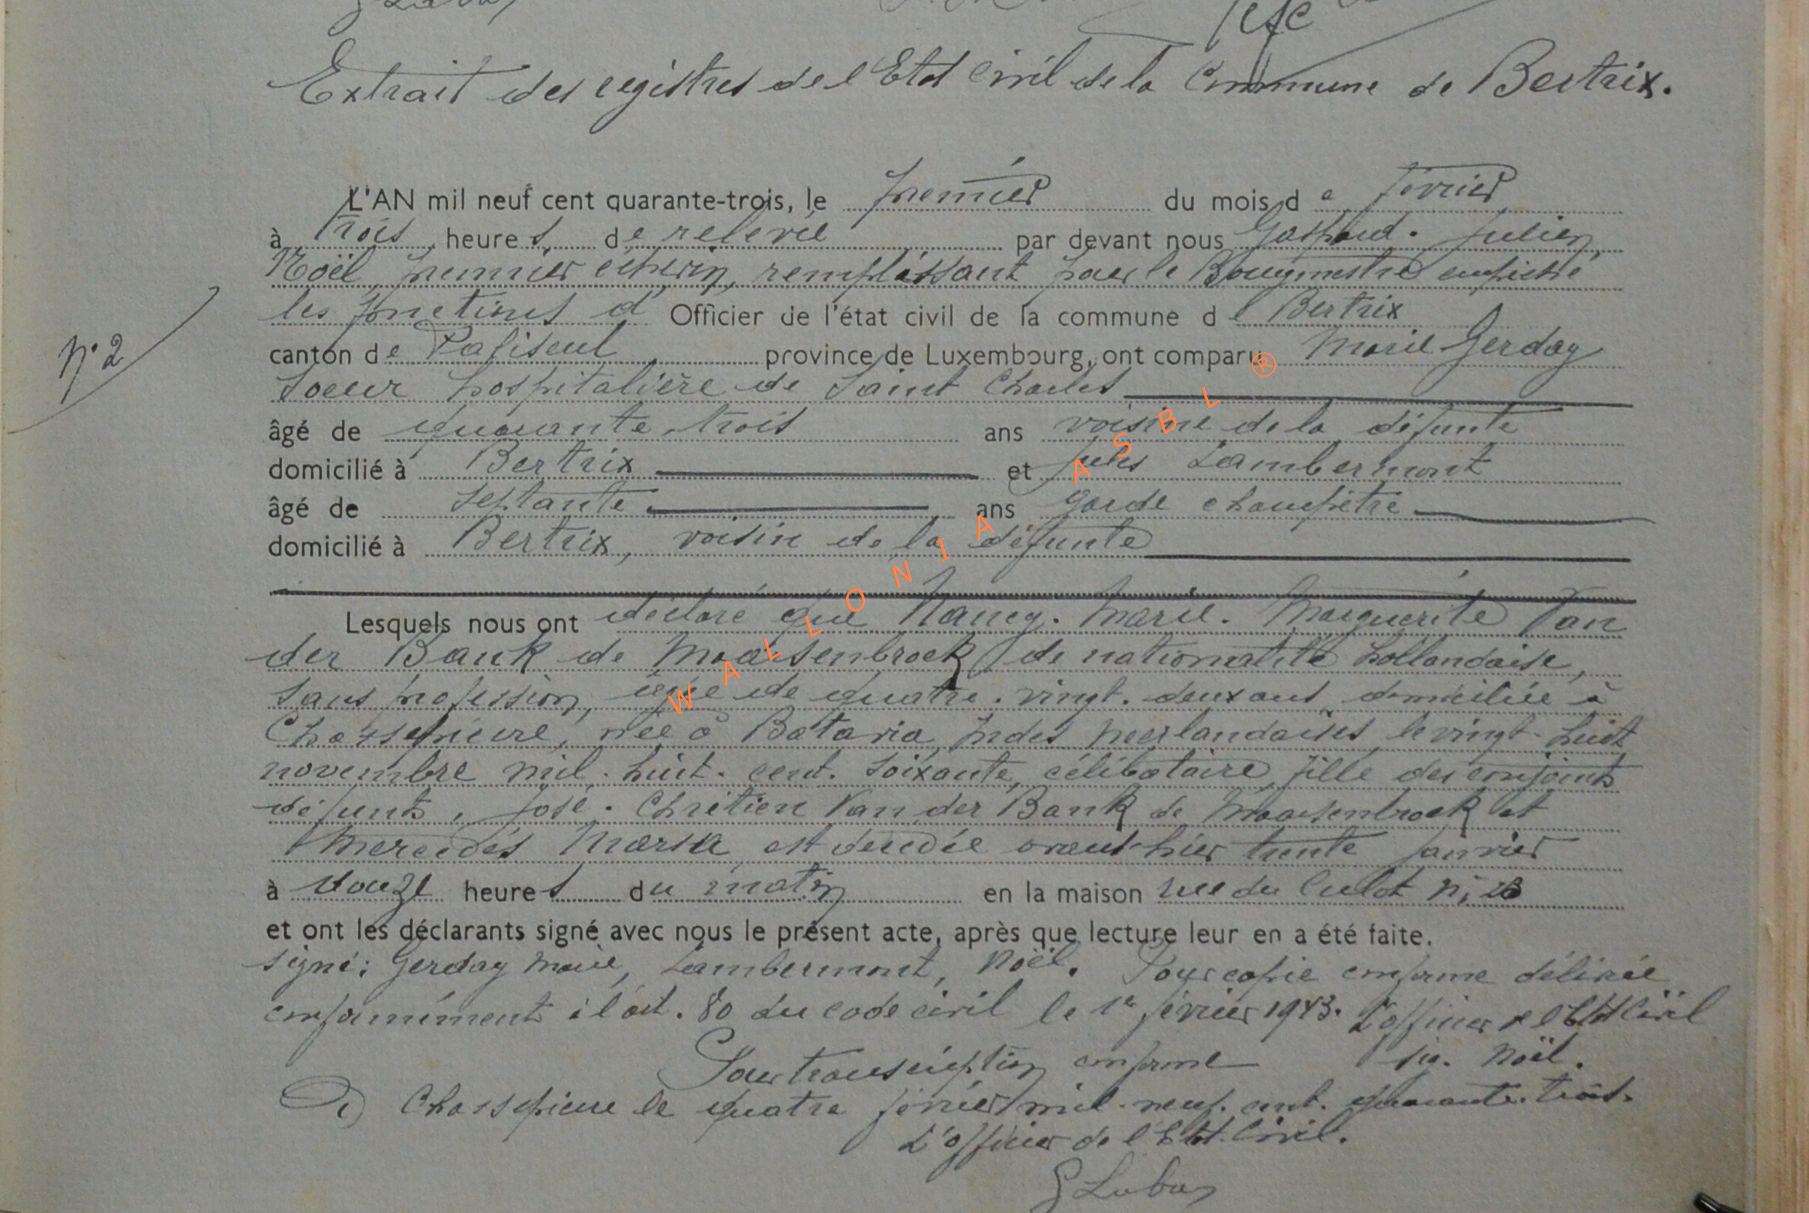 Extrait des registres de l'Etat Civil de la Commune de Bertrix.
L'AN mil neuf cent quarante-trois, le premier du mois de février
à trois heures de relevée par devant nous Gaspard. Julien
Noël, premier échevin, remplissant pour le Bourgmestre empêché
les fonctions d' Officier de l'état civil de la commune de Bertrix
N° 2
canton de Paliseul province de Luxembourg, ont comparu Marie Gerday
soeur hospitalière de Saint Charles
âgé de quarante trois ans voisine de la défunte
domicilié à Bertrix et Jules Lambermont
âgé de septante ans garde champêtre
domicilié à Bertrix, voisin de la défunte
Lesquels nous ont déclaré que Nancy. Marie. Marguerite Van
der Bank de Maasenbroek de nationalité hollandaise,
sans profession, âgée de quatre. vingt. deux ans, domiciliée à
Chassepierre, née à Batavia, Indes Neerlandaises le vingt-huit
novembre mil. huit. cent. soixante, célibataire, fille des conjoints
défunts, José. Chrétien Van der Bank de Maasenbroek et
Mercédès est décédée avant-hier trente janvier
à douze heures du matin en la maison rue du Culot N°
et ont les déclarants signé avec nous le présent acte, après que lecture leur en a été faite.
signé: Gerday Marie, Lambermont, Noël. Pour copie conforme délivrée
conformément à l'art. 80 du code civil le 1er février 1943. L'officier de l'Etat Civil
Pour transcription conforme sig. Noël.
à Chassepierre le quatre février mil. neuf. cent. quarante. trois.
L'officier de l'Etat. Civil.
WALLONIA ASBL ®